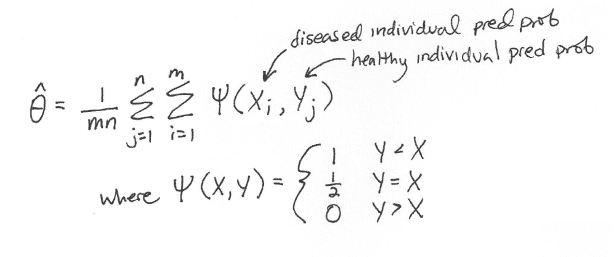 diseased individual pred prob
healthy individual pred prob
θ̂ = 1/mn Σ_{j=1}^{n} Σ_{i=1}^{m} Ψ(X_i, Y_j)
where Ψ(X,Y) = { 1 Y<X
1/2 Y=X
0 Y>X